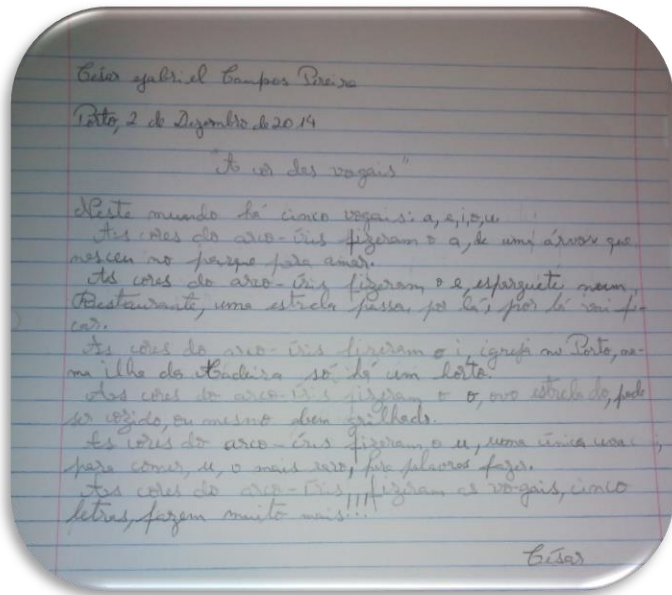 César Gabriel Campos Pereira
Porto, 2 de Dezembro de 2014
"A cor das vogais"
Neste mundo há cinco vogais: a, e, i, o, u.
As cores do arco-íris fizeram o a, de uma árvore que
nasceu no parque para amar.
As cores do arco-íris fizeram o e, esparguete num
Restaurante, uma estrela passa por lá, por lá vai fi-
car.
As cores do arco-íris fizeram o i, igreja no Porto,
ma ilha da Madeira só há um horto.
As cores do arco-íris fizeram o o, ovo estrelado, pode
ser cozido, ou mesmo bem grilhado.
As cores do arco-íris fizeram o u, uma única uva
para comer, u, o mais raro, para palavras fazer.
As cores do arco-íris fizeram as vo-gais, cinco
letras, fazem muito mais!!!
César